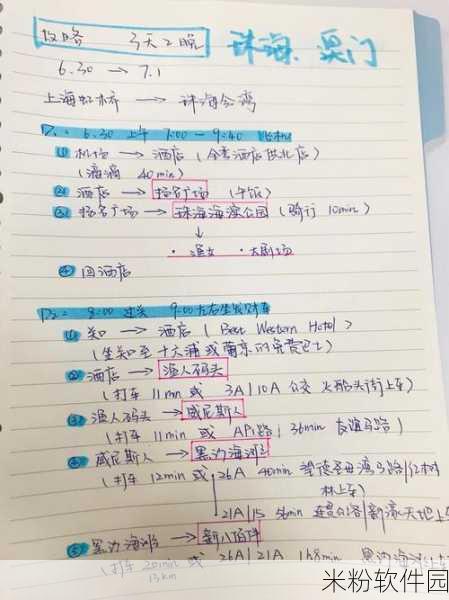 攻略 3天2晚 珠海、澳门
6.30 → 7.1
上海虹桥 → 珠海金湾
D1: 6.30 上午 7:00 - 9:40
① 机场 → 酒店 (酒店拱北店)
(滴滴 40min)
② 酒店 → 扬名广场 (午饭)
③ 扬名广场 → 珠海海滨公园 (骑行 10min)
↓
· 渔女 · 大剧场
④ 回酒店
D2: 8:00 过关 9:00左右坐发财车
① 关口 → 酒店 (Best Western Hotel)
(坐至十六浦或葡京的免费巴士)
② 酒店 → 渔人码头
(打车 11min 或 3A/10A 公交 火船头街上车)
③ 渔人码头 → 威尼斯人
(打车 11min 或 36min 友谊马路)
④ 威尼斯人 → 黑沙海滩
(打车 12min 或 26A 40min 望德圣母湾马路/红树
林上车)
21A/15 56min 连贯公路/新濠天地上
⑤ 黑沙海滩 → 新八佰伴
(打车 20min 或 26A/21A 1h8min 黑沙海滩上车
13km
米粉软件园